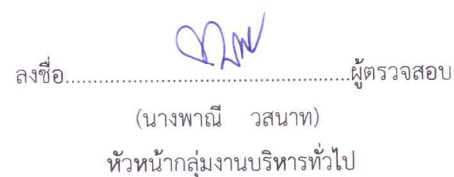 ลงชื่อ................................................ผู้ตรวจสอบ
(นางพาณี วสนาท)
หัวหน้ากลุ่มงานบริหารทั่วไป